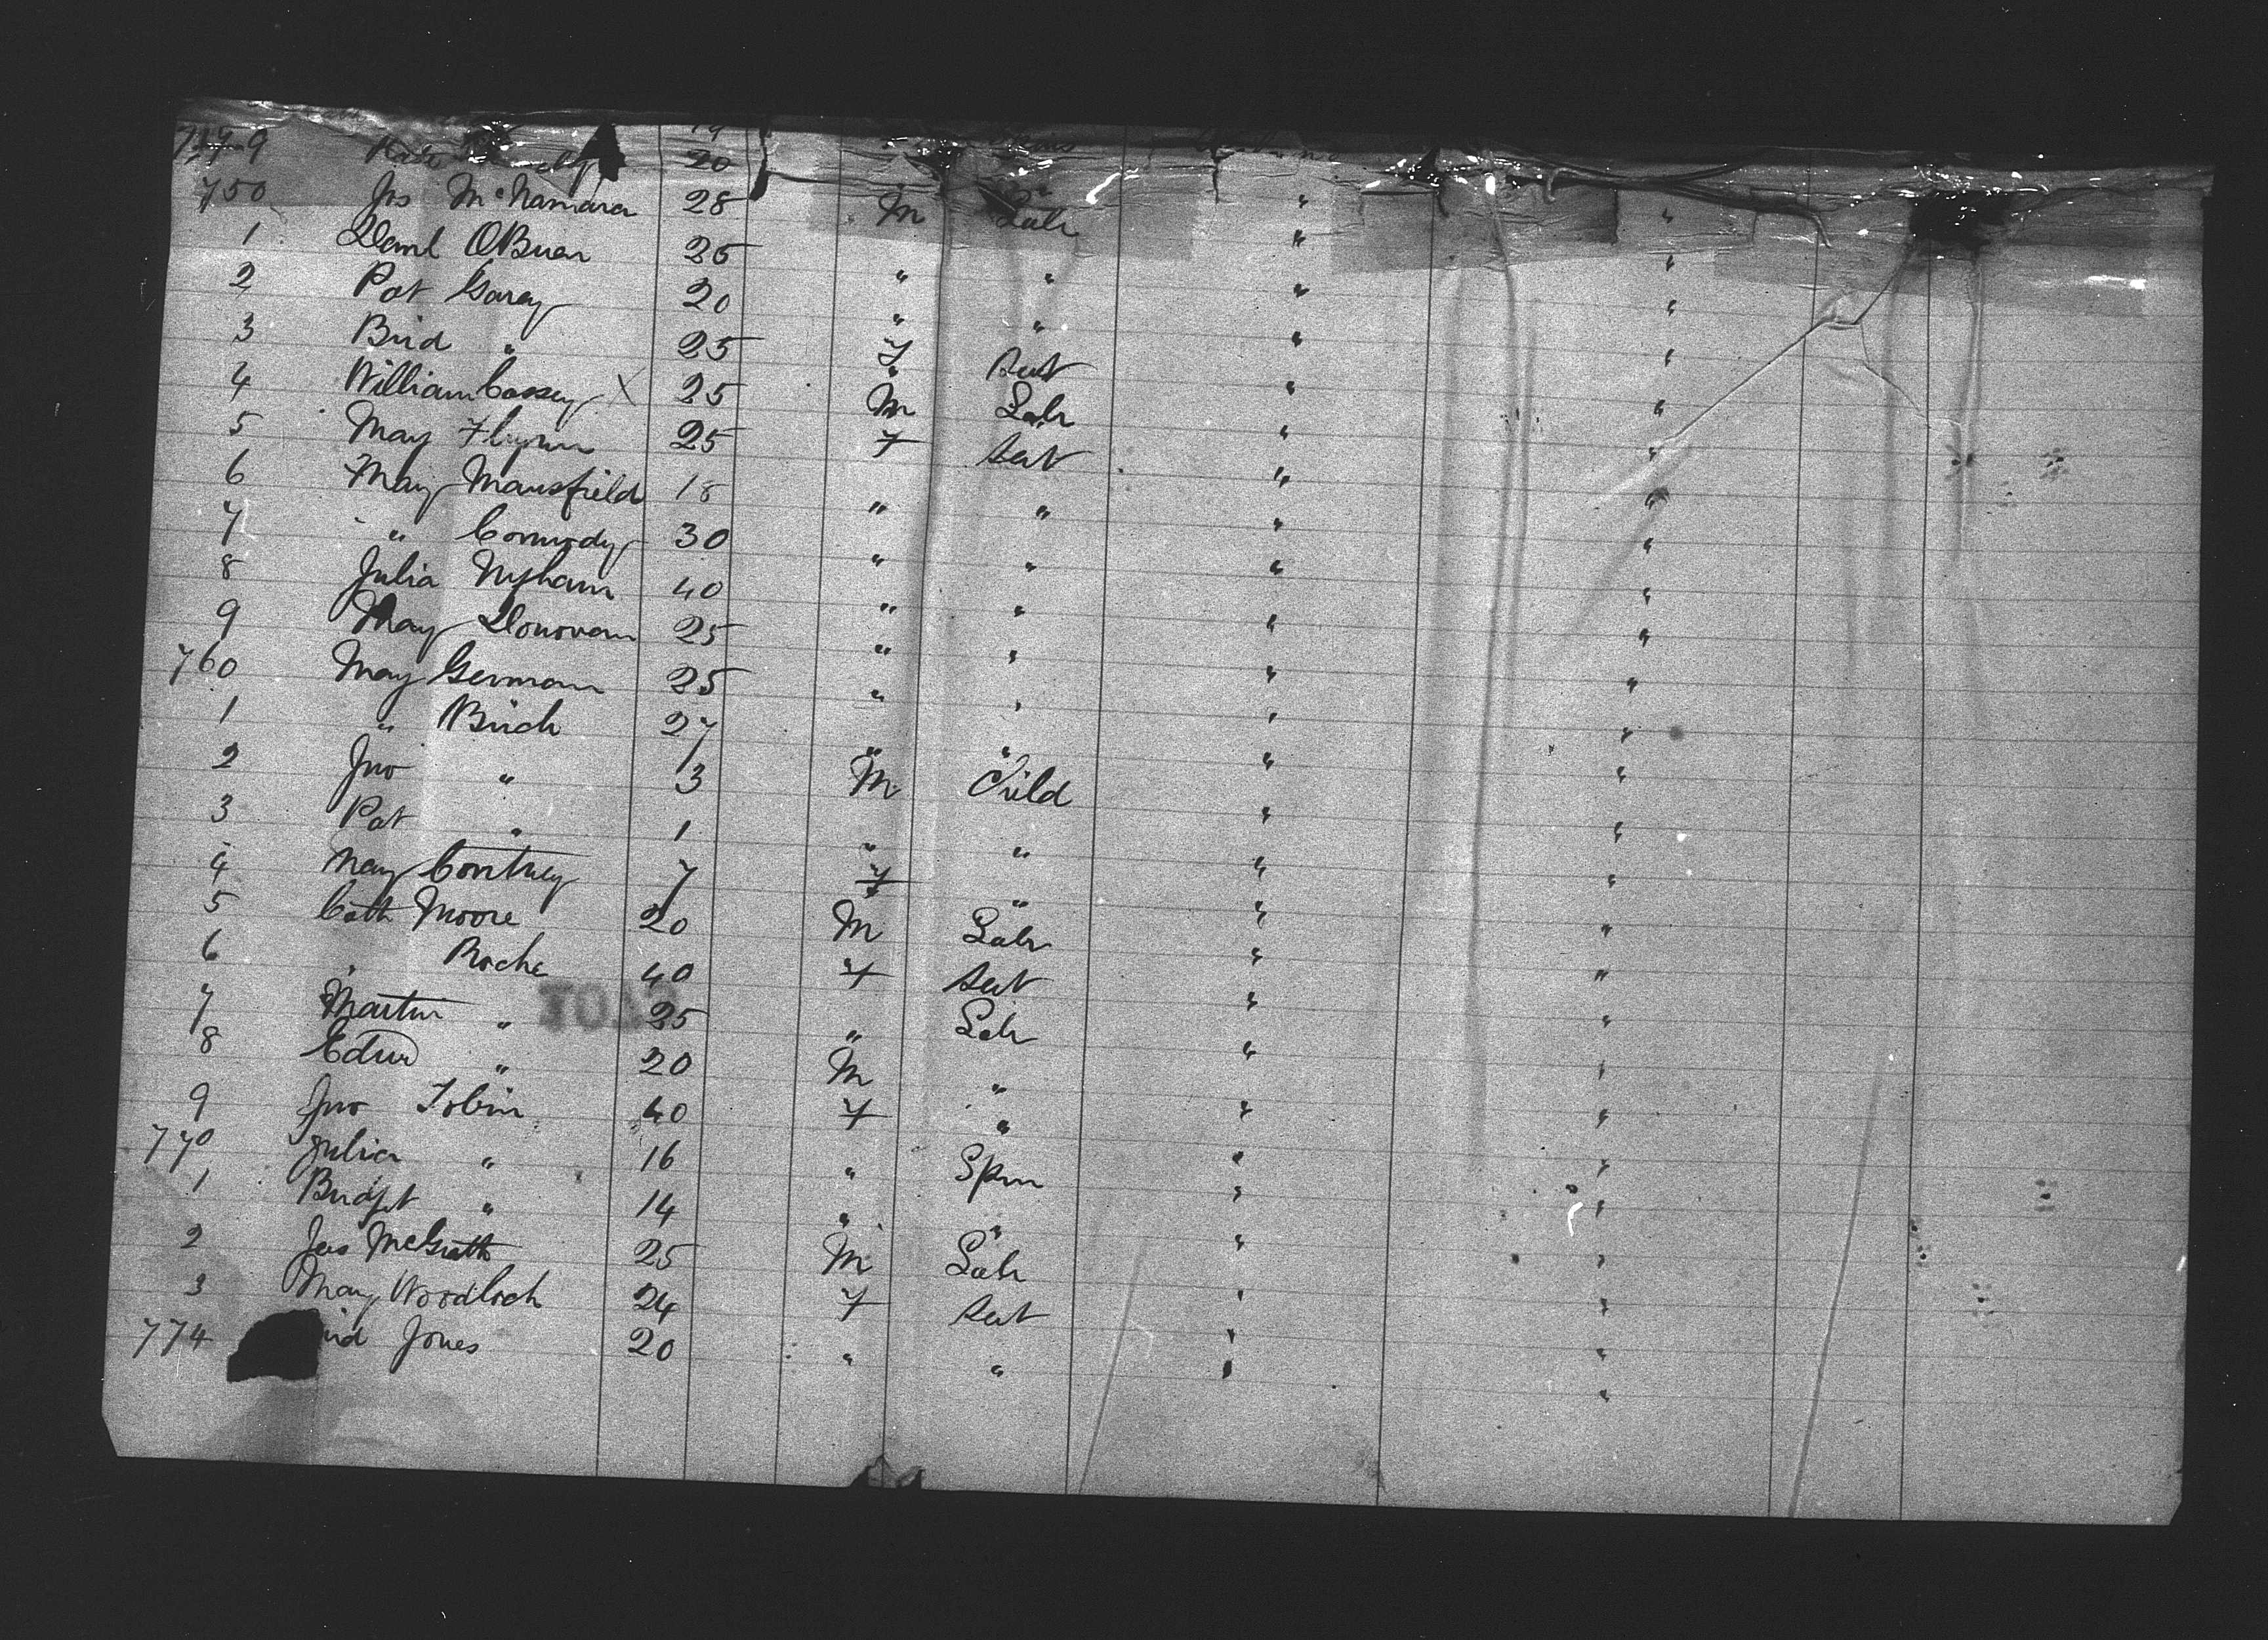 749 Kate 20
750 Jas McNamara 28 M Labr " "
1 Danl OBrien 25 " " " "
2 Pat Garey 20 " " " "
3 Brid " 25 F Sevt " "
4 William Cossey X 25 M Labr " "
5 May Flynn 25 F Sevt " "
6 May Mansfield 18 " " " "
7 " Cormody 30 " " " "
8 Julia Nyhan 40 " " " "
9 May Donovan 25 " " " "
760 May German 25 " " " "
1 " Birch 27 " " " "
2 Jno " 3 M Child " "
3 Pat " 1 " " " "
4 May Contney 7 F " " "
5 Cath Moore 20 M Labr " "
6 " Roche 40 F Sevt " "
7 Martin " 25 " Labr " "
8 Edwd " 20 M " " "
9 Jno Tobin 40 F " " "
770 Julia " 16 " Spin " "
1 Bridget " 14 " " " "
2 Jas McGrath 25 M Labr " "
3 May Woodlock 24 F Sevt " "
774 Jones 20 " " " "